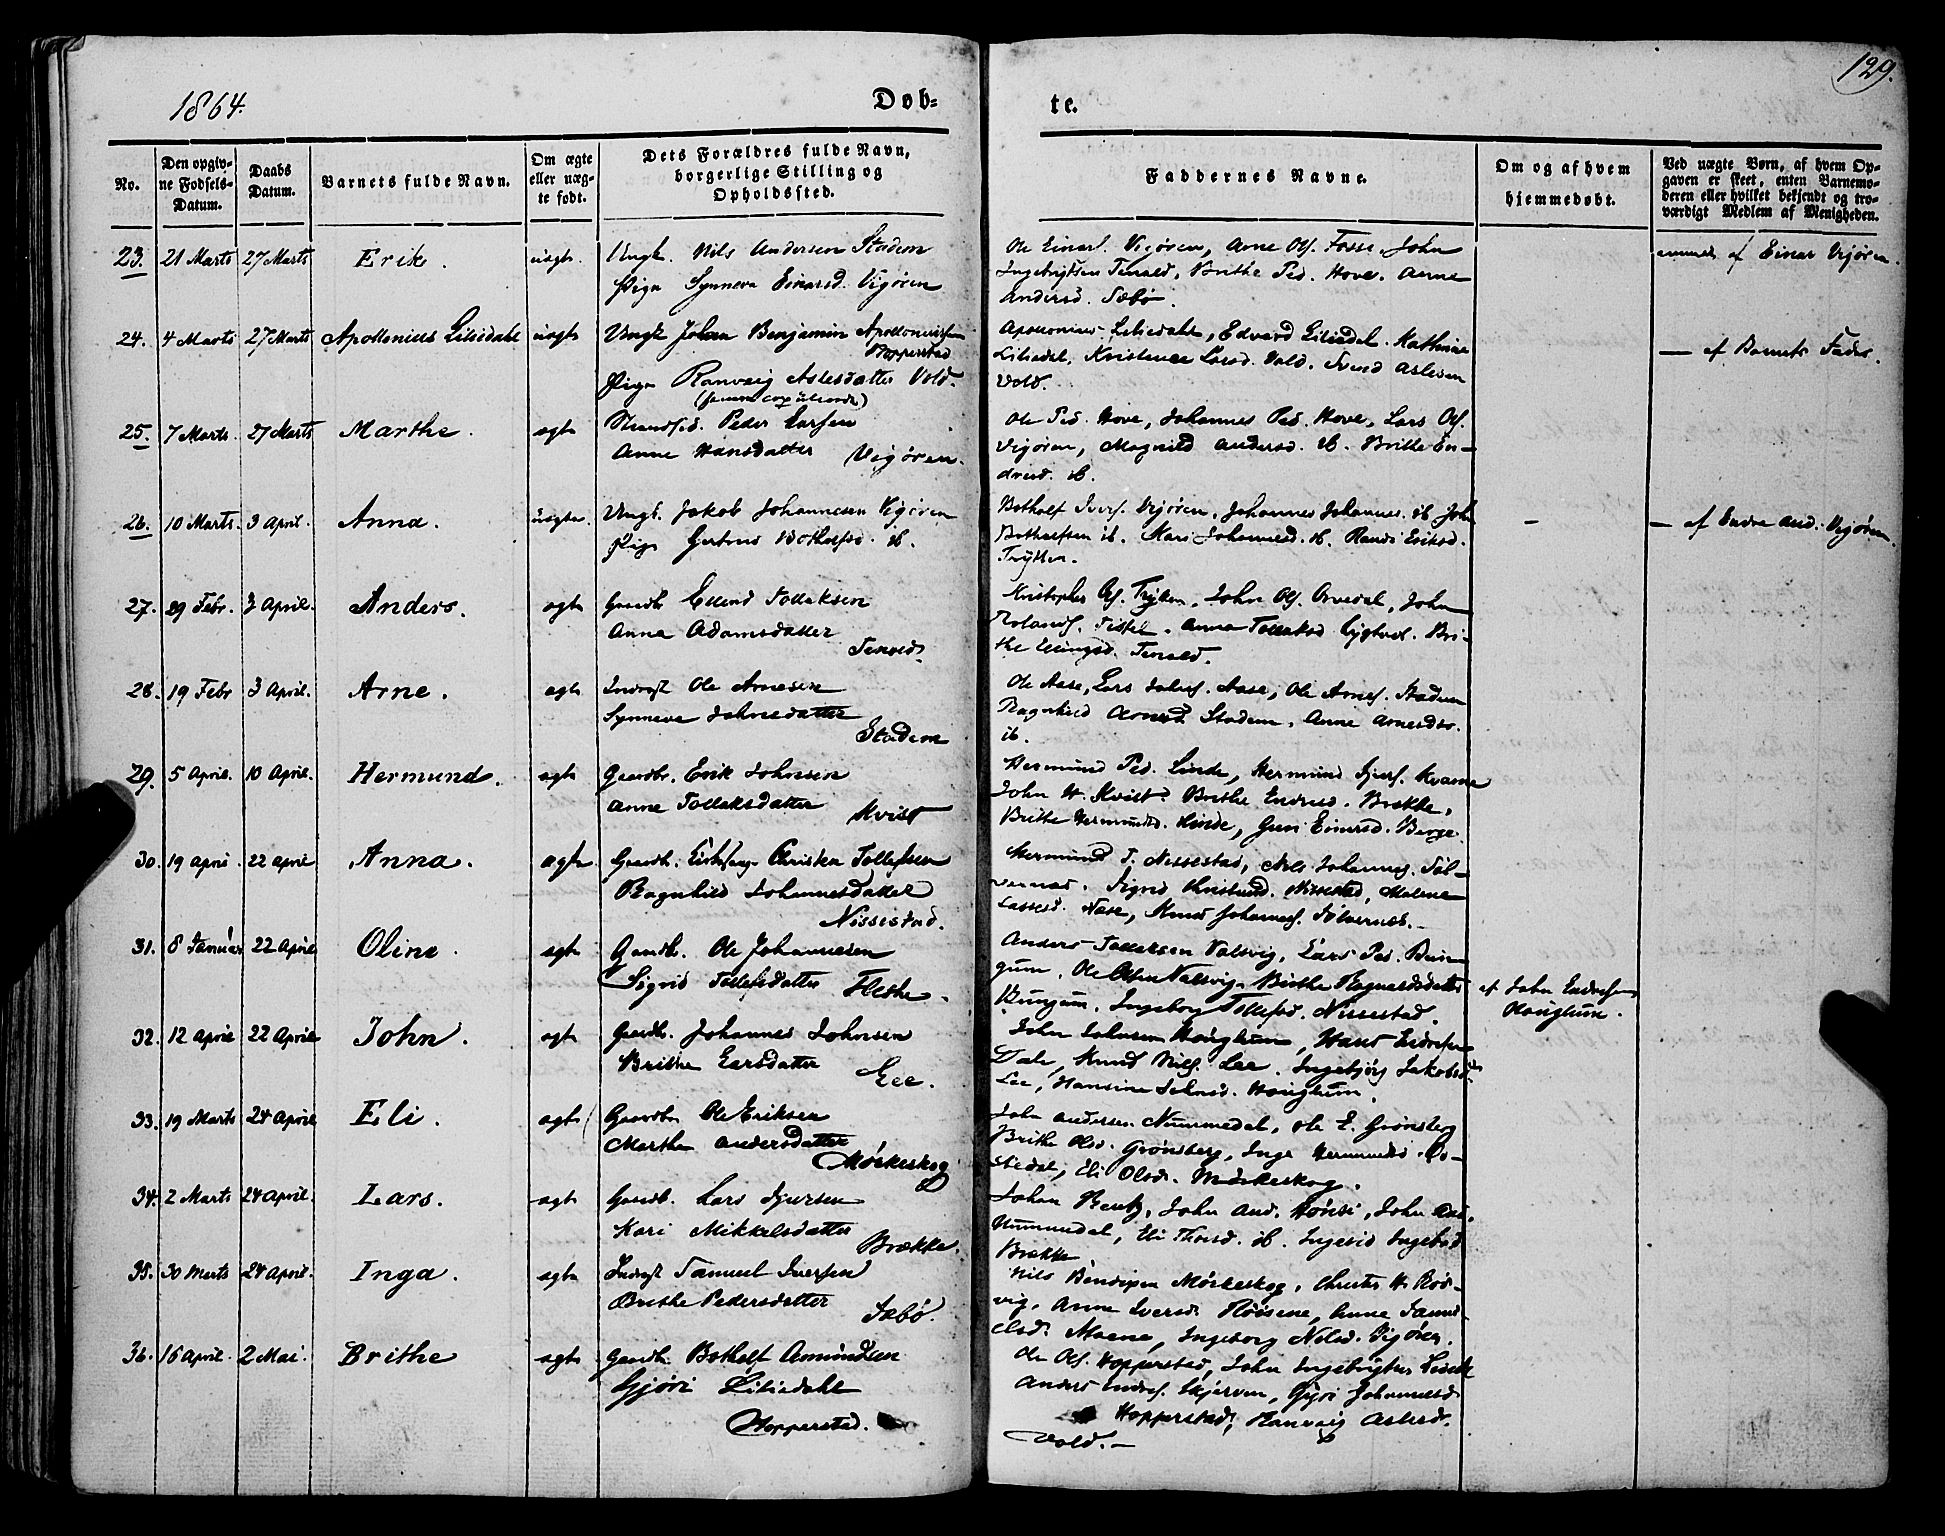 129.
1864.
Døb=
te.
No.
Den opgiv-
ne Fødsels-
Datum.
Daabs
Datum.
Barnets fulde Navn.
Om ægte
eller uæg-
te født.
Dets Forældres fulde Navn,
borgerlige Stilling og
Opholdssted.
Faddernes Navne.
Om og af hvem
hjemmedøbt.
Ved uægte Børn, af hvem Op-
gaven er skeet, enten Barnemo-
deren eller hvilket bekjendt og tro-
værdigt Medlem af Menigheden.
23. 21 Marts 27 Marts Erik. uægte Ungk. Nils Andersen Stadem
Pige Synneva Einarsd. Vigøren
Ole Einars. Vigøren, Arne Ols. Fosse, John
Ingebrigtsen Tenald, Brithe Ped. Hove. Anne
Andersd. Sæbø.
af Einar Vigøren.
24. 4 Marts 27 Marts Apollonius Liliedahl uægte Ungk Johan Benjamin Apolloniussen
Hopperstad
Pige Ranveig Aslesdatter Vold.
Apollonius Liliedahl, Edvard Liliedal. Kathrine
Liliedal, Kristence Larsd. Vold. Svend Aslesen
Vold.
— af Barnets Fader.
25. 7 Marts. 27 Marts Marthe. ægte Strands. Peder Larsen
Anne Hansdatter Vigøren.
Ole Ped. Hove, Johannes Ped. Hove, Lars Ols.
Vigøren, Magnild Andersd. ib. Brithe En-
dresd. ib.
26. 10 Marts. 3 April. Anna. uægte. Ungk. Jakob Johannesen Vigøren
Pige Gertrud Botholfsd. ib.
Botholf Ivers. Vigøren, Johannes Johannes. ib. John
Botholfsen ib. Kari Johannesd. ib. Randi Eriksd.
Trytten.
—
— af Endre And. Vigøren.
27. 29 Febr. 3 April. Anders. ægte Gaardb. Ellend Tollaksen
Anna Adamsdatter
Tenold.
Kristopher Ols. Trytten, John Ols. Orvedal, John
Rolands. Tistel. Anna Tollaksd.
the Ellingsd. Tenold.
28. 19 Febr 3 April. Arne. ægte Inderst Ole Arnesen
Synneva Johnsdatter
Stadem
Ole Aase, Lars Johns. Aase, Ole Arnes. Stadem
Ragnhild Arnesd. Stadem. Anne Arnesdtr.
ib.
29. 5 April. 10 April. Hermund. ægte Gaardbr. Erik Johnsen
Anne Tollaksdatter Kvist
Hermund Ped. Linde, Hermund Sjurs. Kvamme
John H. Kvist. Brithe Endresd. Brække,
Brithe Hermundsd. Linde, Guri Einarsd. Berge.
30. 19 April. 22 April Anna. ægte Gaardb. Christen Tollefsen
Ragnhild Johannesdatter
Nissestad.
Hermund T. Nissestad, Nils Johannes. Søl-
vernæs. Sigrid Kristensd. Nissestad, Malene
Lassesd. Næse, Knud Johannes. Sølvernæs.
31. 8 Januar 22 April Oline. ægte Gaardb. Ole Johannesen
Sigrid Tollefsdatter Flethe.
Anders Tollaksen Valsvig, Lars Ped. Bun-
gum, Ole Olsen Valsvig, Brithe Ragnvaldsdatter
Bungum, Ingeborg Tollefsd. Nissestad.
af John Endresen
Hauglum.
32. 12 April 22 April John. ægte Gaardb. Johannes Johnsen
Brithe Larsdatter
Lee.
John Johnsen Hauglum, Hans Endresen
Dale, Knud Nils. Lee. Ingebjørg Jakobsd.
Lee, Hansine Johnsd. Hauglum.
33. 19 Marts 24 April Eli. ægte Gaardbr Ole Eriksen
Marthe Andersdatter
Mørkeskog
John Andersen Nummedal, Ole E. Grønsberg
Brithe Olsd. Grønsberg, Inge Hermundsd. O-
stedal, Eli Olsd. Mørkeskog.
34. 2 Marts 24 April. Lars. ægte Gaardb. Lars Sjursen
Kari Mikkelsdatter
Brække.
Johan Rentz, John And. Hønsi, John And.
Nummedal, Eli Thorsd. ib. Ingerid Ingebod
Brække
35. 30 Marts 24 April. Inga. ægte Inderst Samuel Iversen
Brithe Pedersdatter
Sæbø.
Nils Bendixen Mørkeskog, Christen H. Rød-
vig, Anne Iversd. Røisene, Anne Samu-
elsd. Moene, Ingeborg Nilsd. Vigøren.
36. 16 April. 2 Mai. Brithe ægte Gaardbr. Botholf Amundsen
Gjøri Liliedahl
Hopperstad.
Ole Ols. Hopperstad, John Ingebrigtsen
Anders Endres. Skjerven, Gjøri Johannesd.
Hopperstad, Ranveig Aslesd.
Vold. —